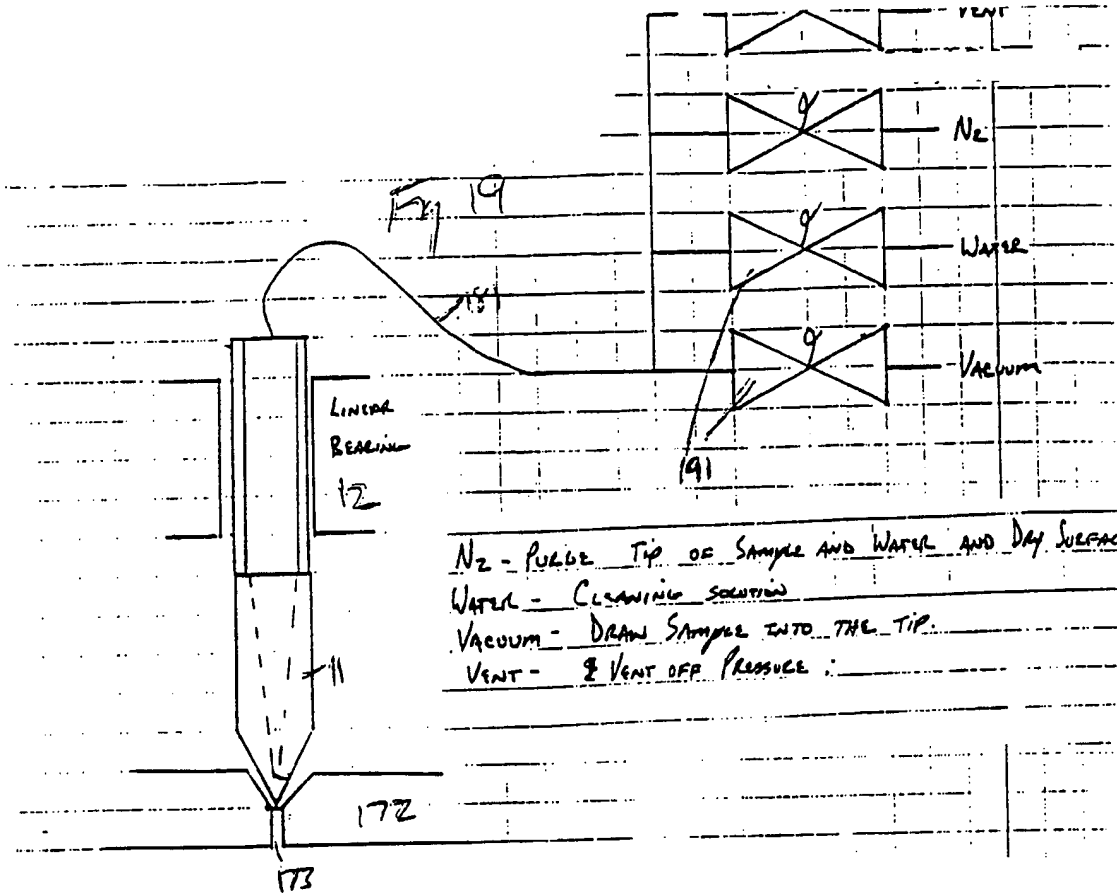 VENT
N2
19
WATER
181
VACUUM
LINEAR
BEARING
12
191
N2 - PURGE TIP OF SAMPLE AND WATER AND DRY SURFAC
WATER - CLEANING SOLUTION
VACUUM - DRAW SAMPLE INTO THE TIP.
VENT - VENT OFF PRESSURE :
11
172
173